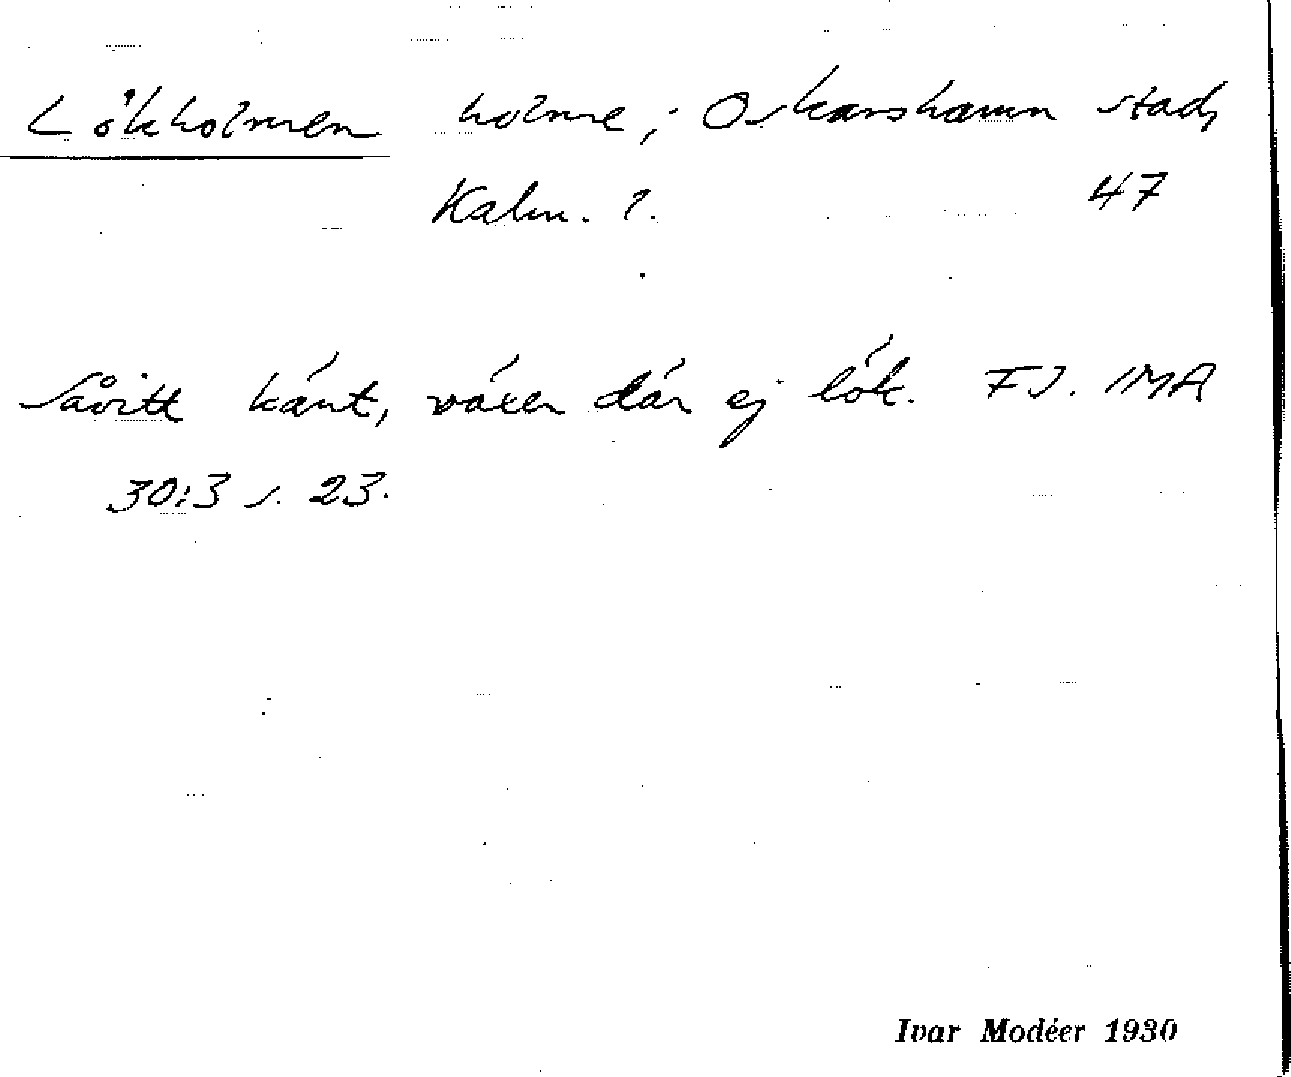 Lökholmen holme; Oskarshamn stad,
Kalm. l. 47
Såvitt känt, växer där ej lök. FJ. IMA
30:3 s. 23.
Ivar Modéer 1930